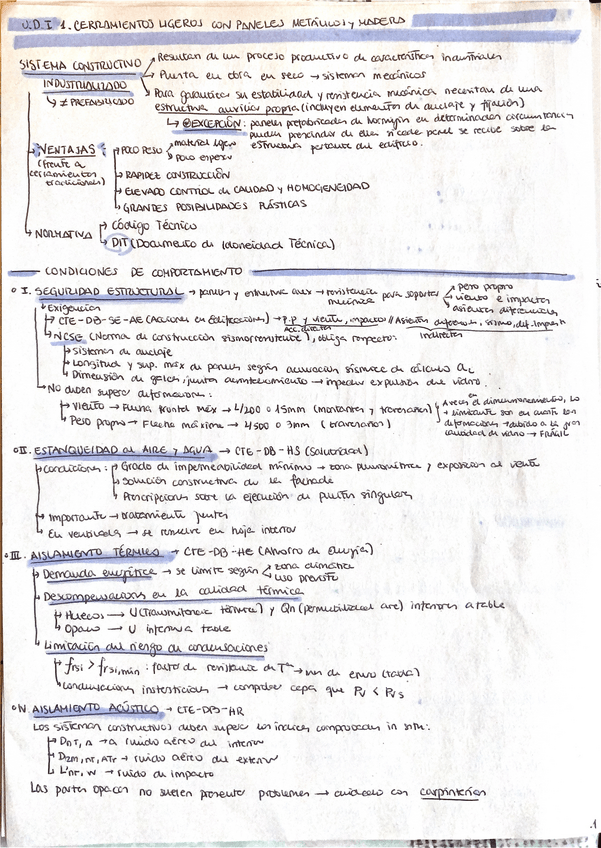 U.D.I 1. CERRAMIENTOS LIGEROS CON PANELES METÁLICOS y MADERA
SISTEMA CONSTRUCTIVO INDUSTRIALIZADO
↳ ≠ PREFABRICADO
→ Resultan de un proceso productivo de características industriales
→ Puesta en obra en seco → sistemas mecánicos
→ Para garantizar su estabilidad y resistencia mecánica necesitan de una
estructura auxiliar propia (incluyen elementos de anclaje y fijación)
↳ EXCEPCIÓN: paneles prefabricados de hormigón en determinadas circunstancias
pueden prescindir de ellas si cada panel se recibe sobre la
estructura portante del edificio.
→ VENTAJAS
(frente a
cerramientos
tradicionales)
→ POCO PESO → material ligero
→ poco espesor
→ RAPIDEZ CONSTRUCCIÓN
→ ELEVADO CONTROL de CALIDAD y HOMOGENEIDAD
→ GRANDES POSIBILIDADES PLÁSTICAS
→ NORMATIVA → Código Técnico
→ DIT (Documento de Idoneidad Técnica)
CONDICIONES DE COMPORTAMIENTO
I. SEGURIDAD ESTRUCTURAL → paneles y estructura aux → resistencia mecánica para soportar
→ peso propio
→ viento e impactos
→ asientos diferenciales
→ Exigencias
→ CTE-DB-SE-AE (Acciones en Edificaciones) → P.P y viento, impactos // Asientos diferenciales, sismo, dif. temperat
acc. directas indirectas
→ NCSE (Norma de construcción sismorresistente), obliga respecto:
→ Sistemas de anclaje
→ Longitud y sup. máx de paneles según aceleración sísmica de cálculo ac
→ Dimensión de galces, juntas acristalamiento → impedir expulsión del vidrio.
→ No deben superar deformaciones:
→ Viento → Flecha frontal máx → L/200 o 15mm (montantes y travesaños)
→ Peso propio → Flecha máxima → L/500 o 3mm (travesaños)
A veces en el dimensionamiento, lo
+ limitante son en cuanto las
deformaciones → debido a la gran
cantidad de vidrio → FRÁGIL
II. ESTANQUEIDAD al AIRE y AGUA → CTE-DB-HS (Salubridad)
→ Condiciones: → Grado de impermeabilidad mínimo → zona pluviométrica y exposición al viento
→ Solución constructiva de la fachada
→ Prescripciones sobre la ejecución de puntos singulares
→ Importante → tratamiento juntas
→ En ventilada → se resuelve en hoja interior
III. AISLAMIENTO TÉRMICO → CTE-DB-HE (Ahorro de Energía)
→ Demanda energética → se limita según → zona climática
→ uso previsto
→ Descompensaciones en la calidad térmica
→ Huecos → U (Transmitancia térmica) y Qn (permeabilidad aire) inferiores a table
→ Opaco → U inferior a table
→ Limitación del riesgo de condensaciones
→ frsi > frsi,min: factor de resistencia de Tª → mes de enero (tabla)
→ Condensaciones intersticiales → comprobar capa que Pv < Pvs
IV. AISLAMIENTO ACÚSTICO → CTE-DB-HR
Los sistemas constructivos deben superar los índices comprobados in situ:
→ DnT,A → a ruido aéreo del interior
→ D2m,nT,ATr → ruido aéreo del exterior
→ L'nT,W → ruido de impacto
Las partes opacas no suelen presentar problemas → cuidado con carpinterías